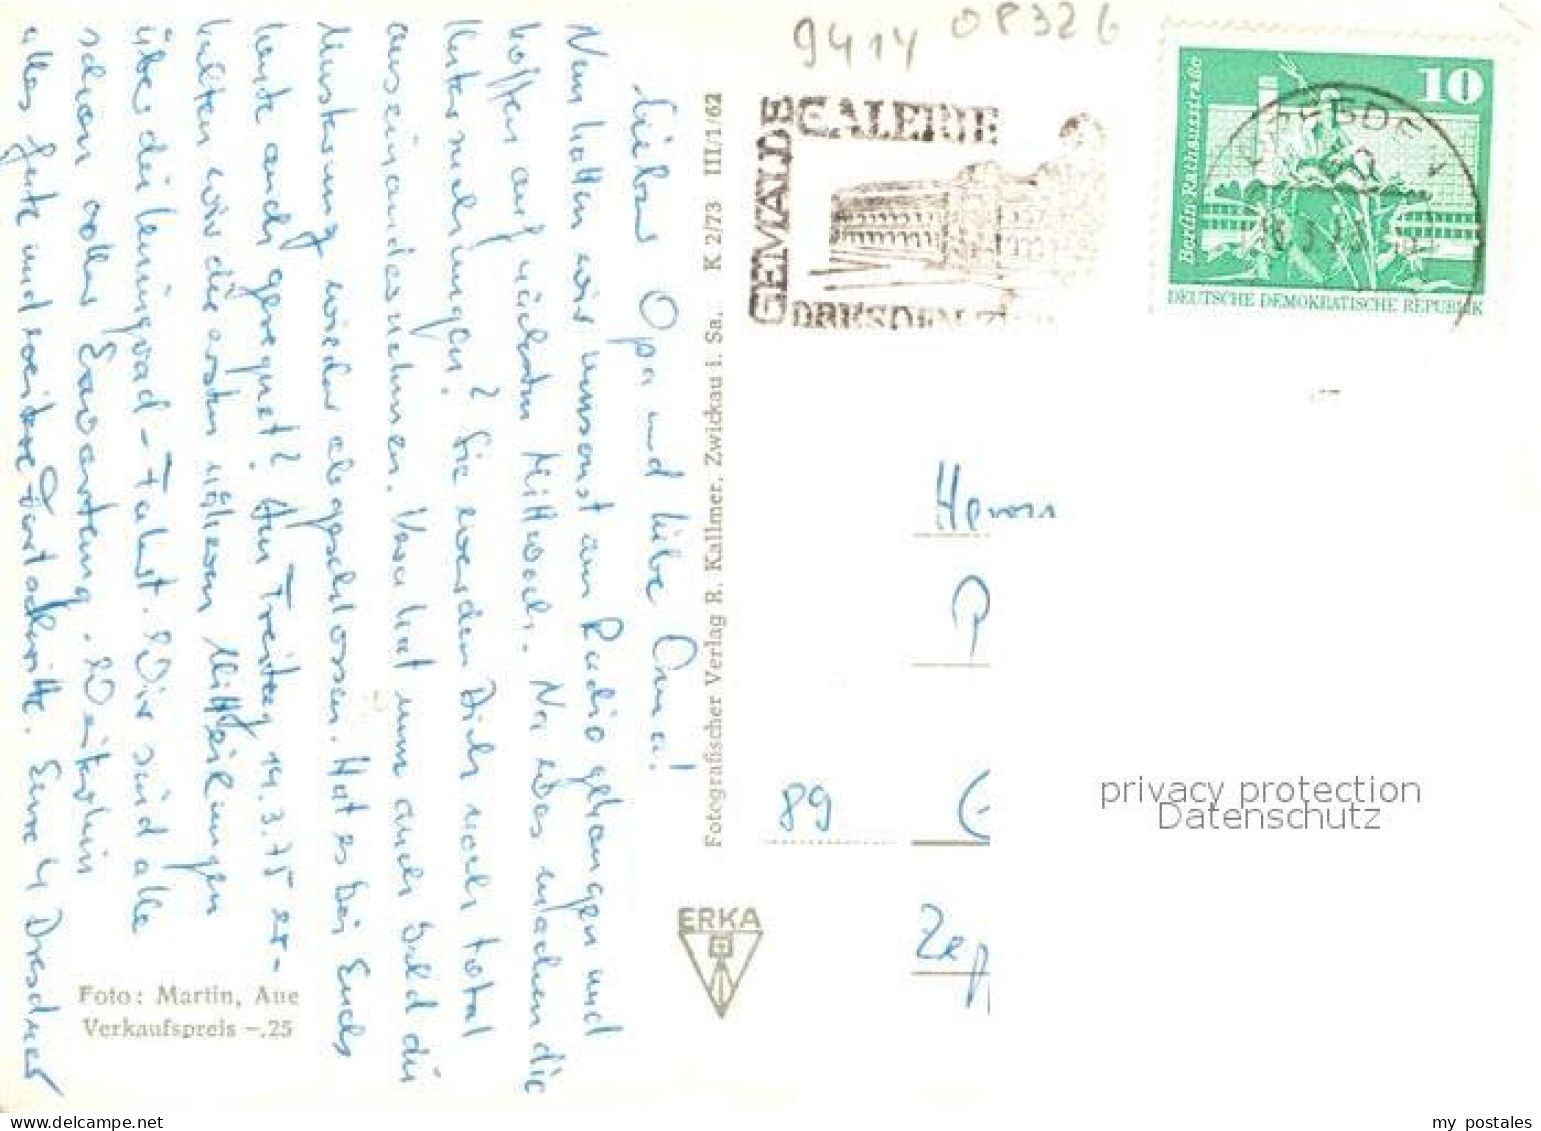 9414 08326
GEMÄLDE
GALERIE
DRESDEN
10
Berlin Rathausstraße
DEUTSCHE DEMOKRATISCHE REPUBLIK
DRESDEN
Lieber Opa und liebe Oma!
Nun hatten wir umsonst am Radio gehangen und
hoffen auf nächsten Mittwoch. Na was machen die
Untersuchungen? Sie werden Dich noch total
auseinandernehmen. Uwe hat nun auch bald die
Musterung wieder abgeschlossen. Hat es bei Euch
heute auch geregnet? Am Freitag 14.3.75 er-
halten wir die ersten näheren Mitteilungen
über die Leningrad-Fahrt. Wir sind alle
schon voller Erwartung. Weiterhin
alles Gute und weitere Fortschritte. Eure 4 Dresdner
Foto: Martin, Aue
Verkaufspreis -.25
Fotografischer Verlag R. Kallmer, Zwickau i. Sa. K 2/73 III/1/62
ERKA
Herrn
P
89 G
Zep
privacy protection
Datenschutz
my postales